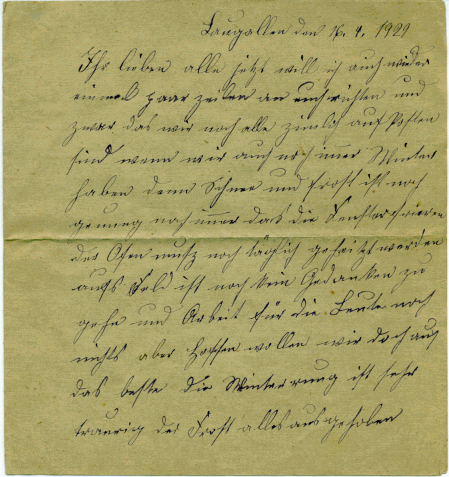 Laugallen den 16. 4. 1929
Ihr lieben alle jetzt will ich auch wieder
einmal paar zeilen an euch richten und
zwar das wir noch alle zimlich auf Posten
sind wenn wir auch noch imer Winter
haben denn Schnee und Frost ist noch
genueg noch imer das die Fensterscheiben
der Ofen musz noch täglich geheizt werden
aufs Feld ist noch kein Gedanken zu
gehn und Arbeit für die Leute noch
nichts aber hoffen wollen wir doch auf
das beste die Winterrung ist sehr
traurig der Frost alles ausgehoben